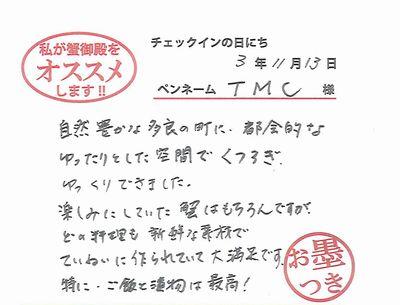 私が蟹御殿を
オススメ
します!!
チェックインの日にち
3年11月13日
ペンネーム TMC 様
自然豊かな多良の町に、都会的な
ゆったりとした空間でくつろぎ、
ゆっくりできました。
楽しみにしていた蟹はもちろんですが、
どの料理も新鮮な素材で
ていねいに作られていて大満足です。
特に、ご飯と漬物は最高!
お墨
つき